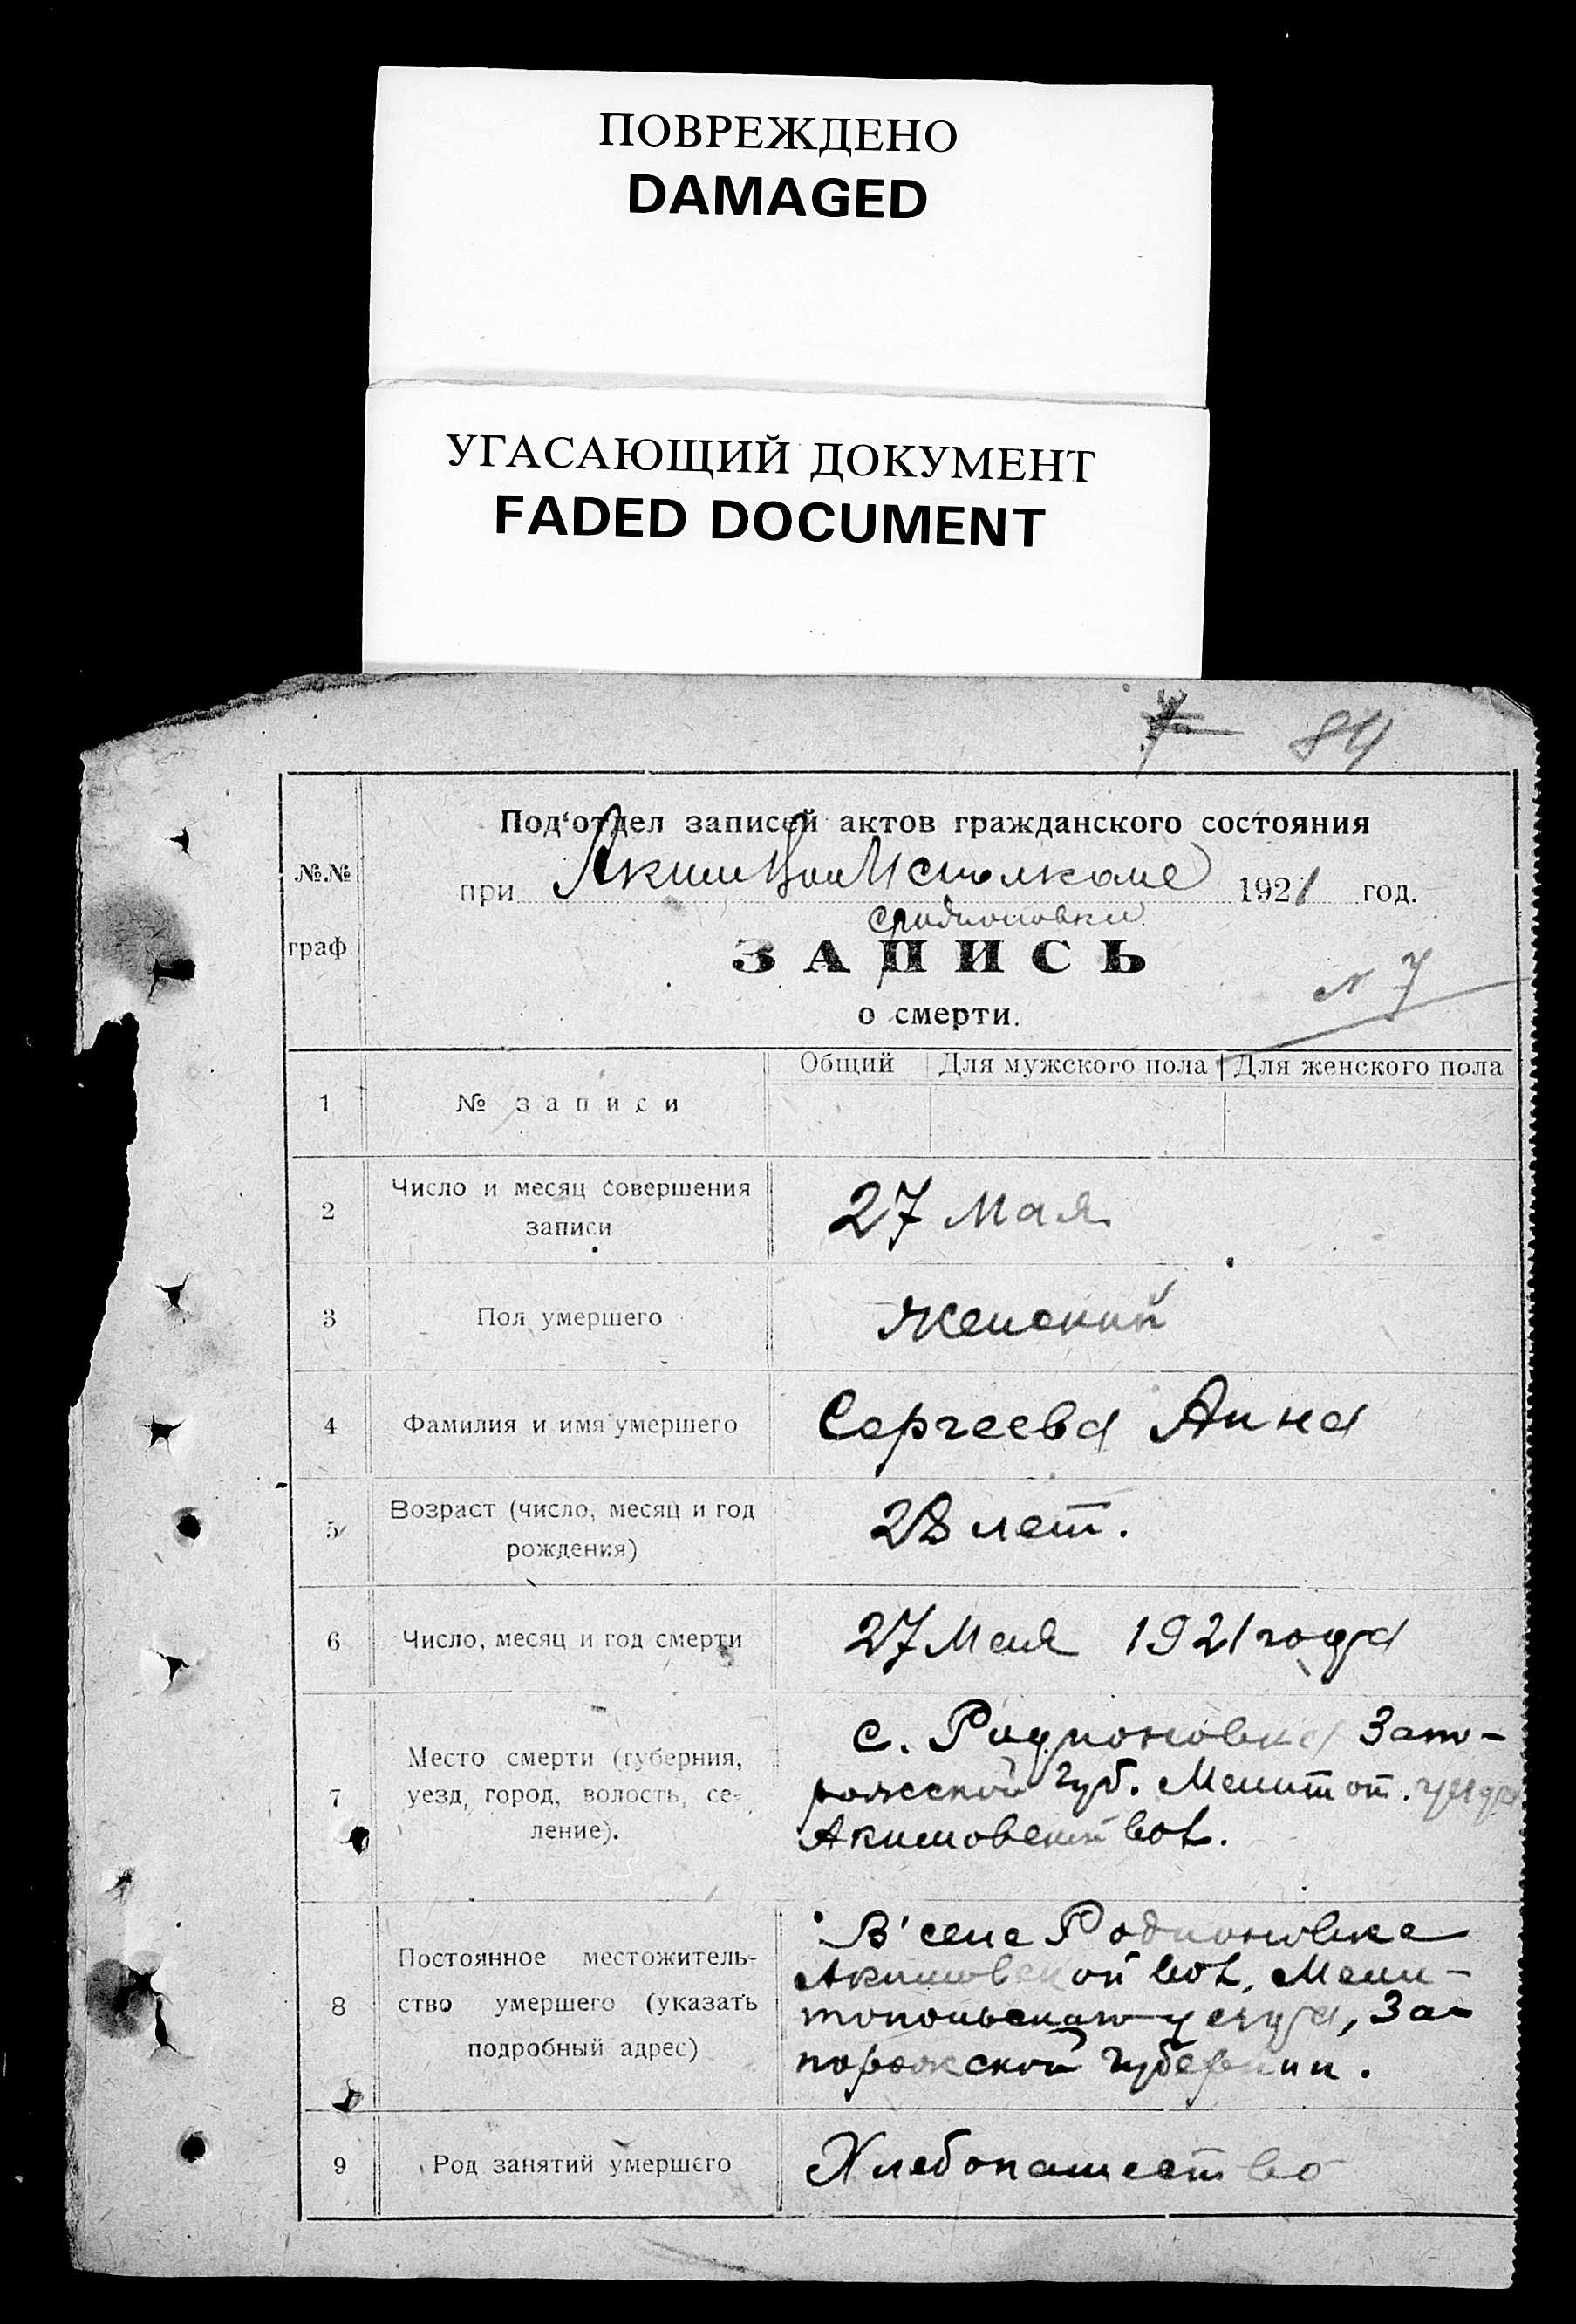 ПОВРЕЖДЕНО
DAMAGED
УГАСАЮЩИЙ ДОКУМЕНТ
FADED DOCUMENT
84
Под'отдел записей актов гражданского состояния
№№
при 1921 год.
граф
ЗАПИСЬ
N 7
о смерти.
Общий Для мужского пола Для женского пола
1 № записи
2 Число и месяц совершения
записи
27 Мая
3 Пол умершего Женский
4 Фамилия и имя умершего Сергеева Анна
5 Возраст (число, месяц и год
рождения)
28 лет.
6 Число, месяц и год смерти 27 Мая 1921 года
7 Место смерти (губерния,
уезд, город, волость, се-
ление).
с. Родионовка Запо-
рожской губ. Мелитоп. уезда
Акимовской вол.
8 Постоянное местожитель-
ство умершего (указать
подробный адрес)
В селе Родионовке
Акимовской вол, Мели-
топольского уезда, За-
порожской губернии.
9 Род занятий умершего Хлебопашество